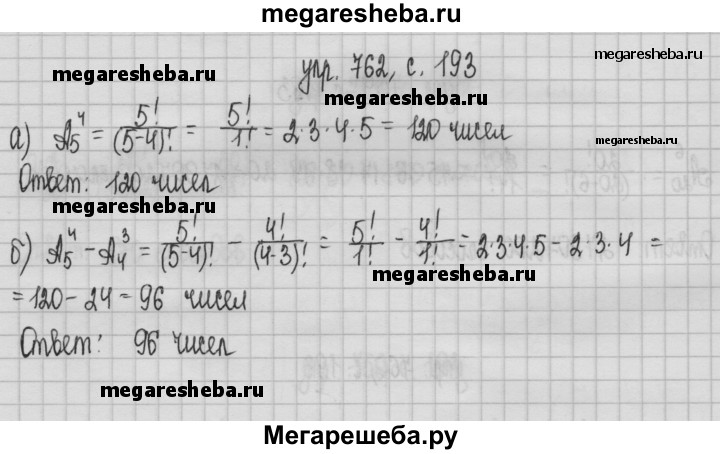 megaresheba.ru
упр. 762, с. 193
megaresheba.ru
megaresheba.ru
megaresheba.ru
а) A₅⁴ = 5!/(5-4)! = 5!/1! = 2·3·4·5 = 120 чисел
megaresheba.ru
Ответ: 120 чисел
megaresheba.ru
б) A₅⁴ - A₄³ = 5!/(5-4)! - 4!/(4-3)! = 5!/1! - 4!/1! = 2·3·4·5 - 2·3·4 =
megaresheba.ru
= 120 - 24 = 96 чисел
Ответ: 96 чисел
megaresheba.ru
Мегарешеба.ру